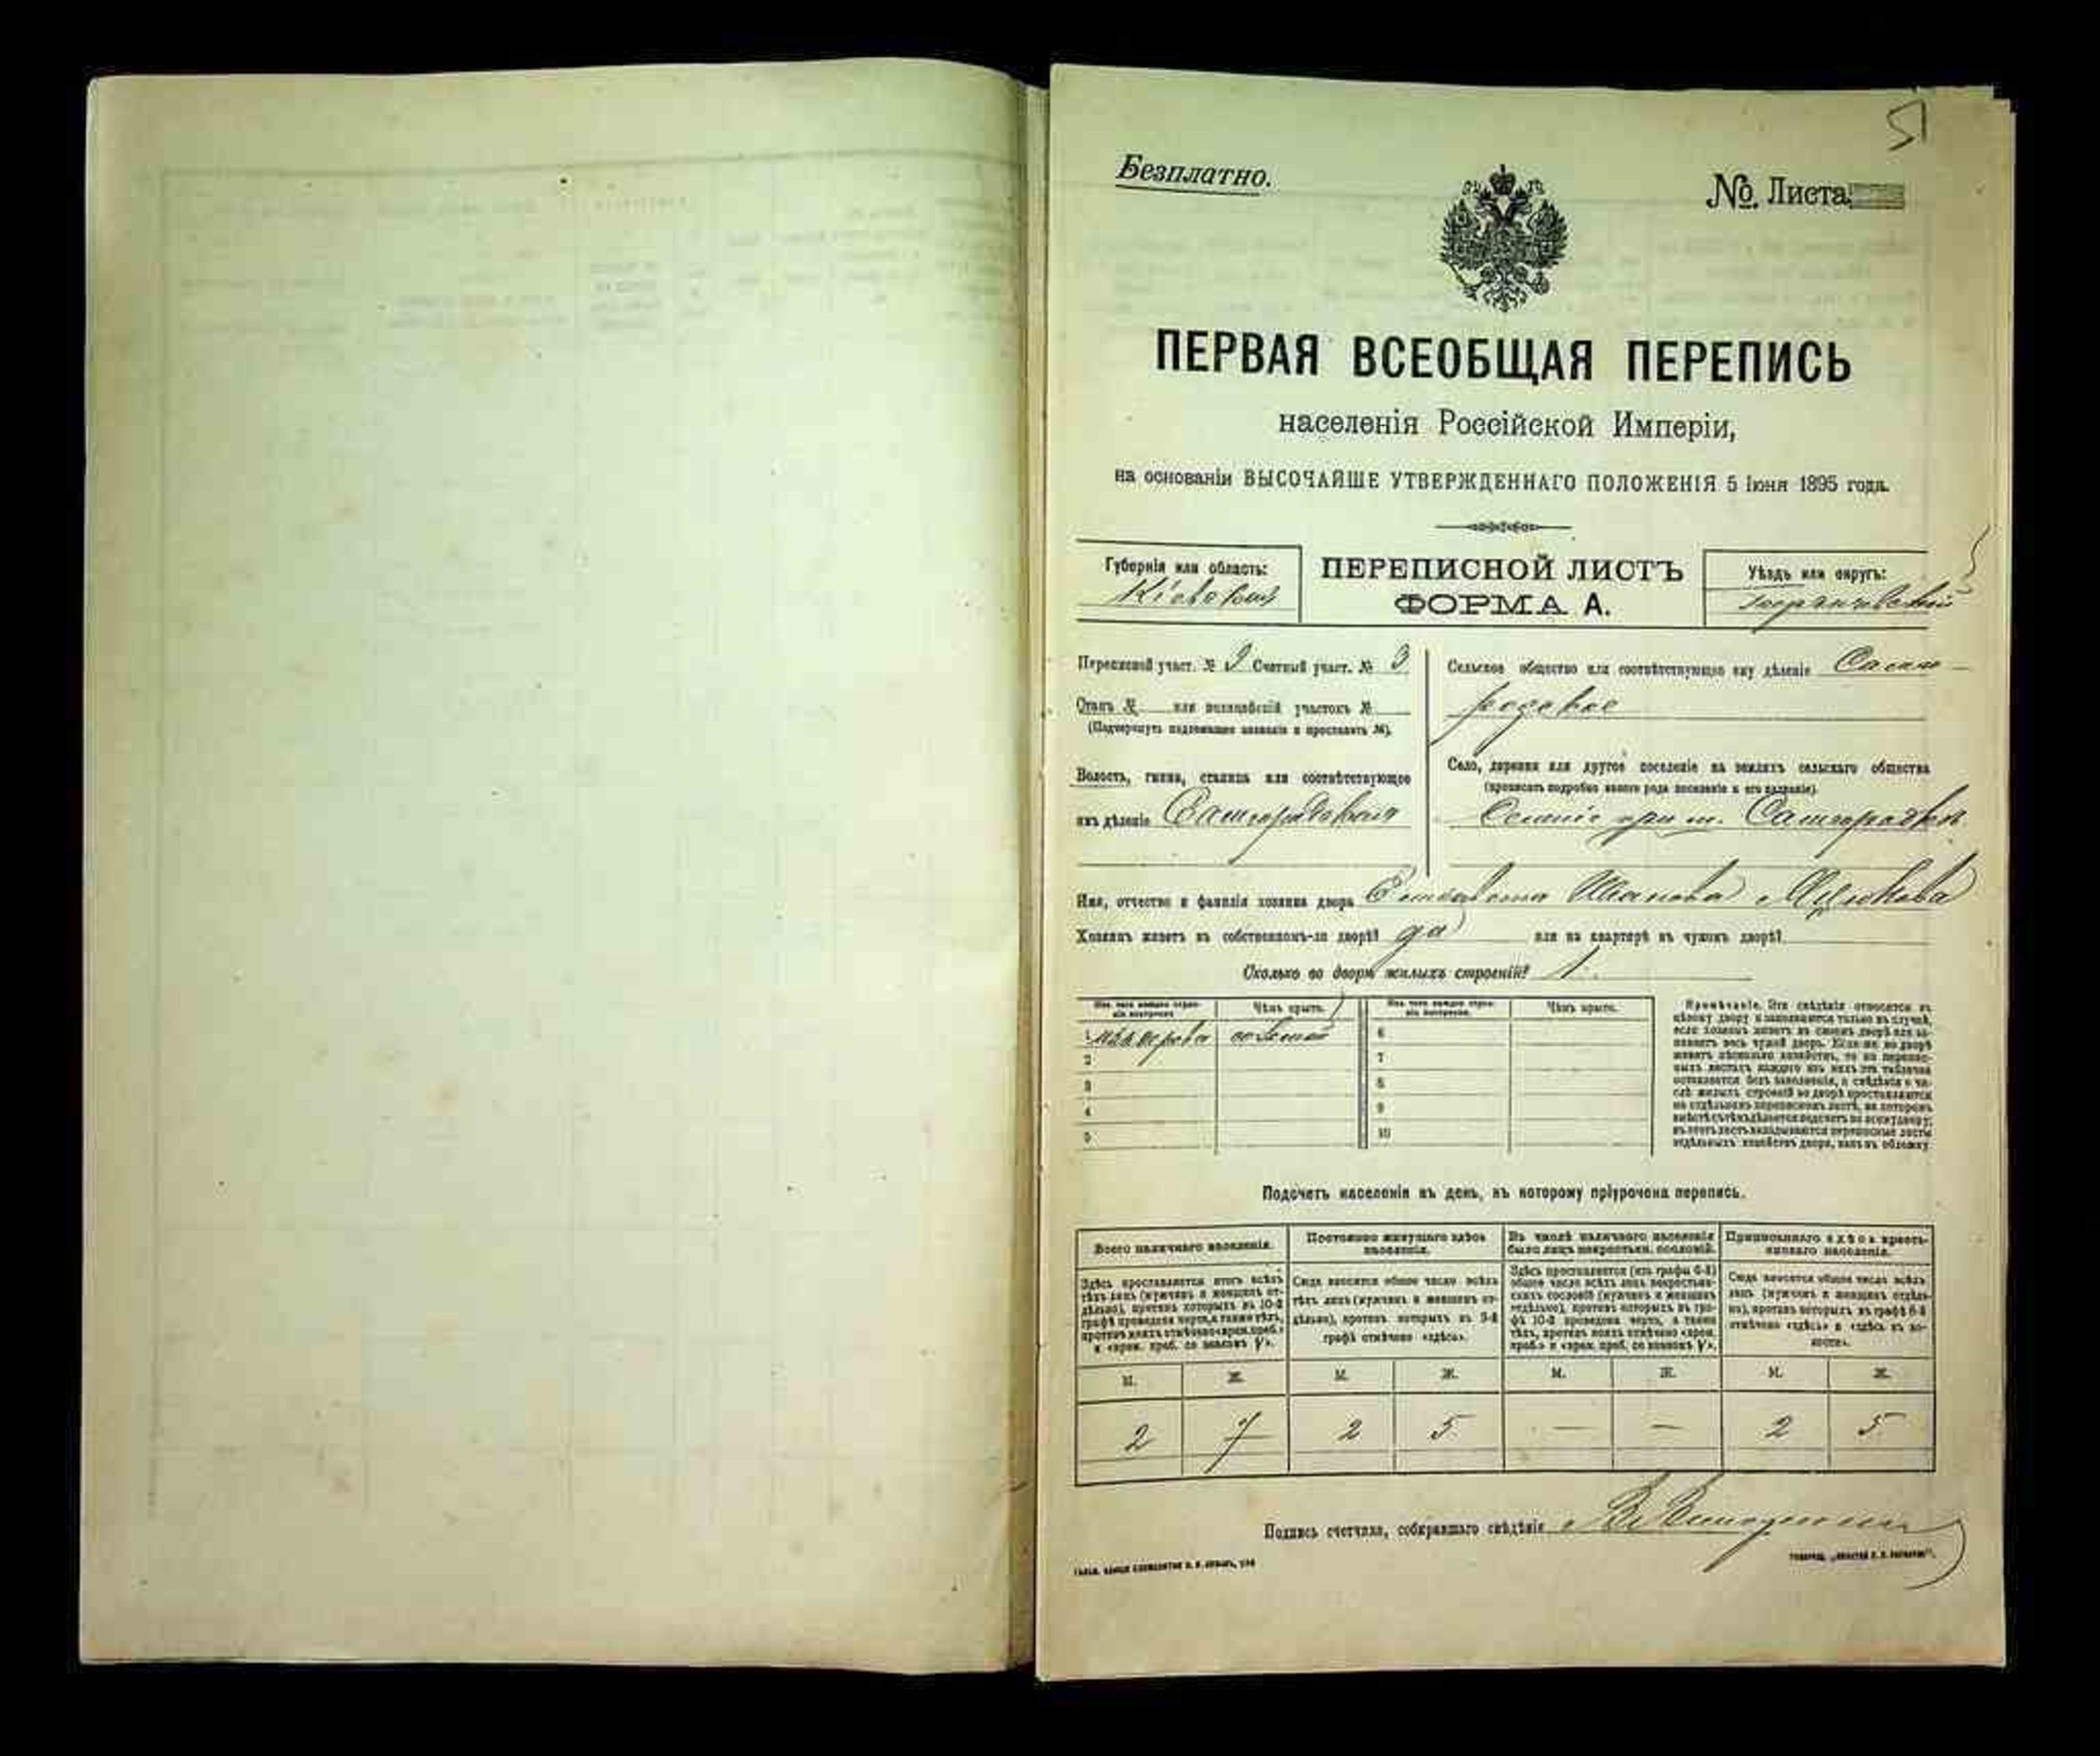 51
Безплатно.
№. Листа
ПЕРВАЯ ВСЕОБЩАЯ ПЕРЕПИСЬ
населенія Россійской Имперіи,
на основаніи ВЫСОЧАЙШЕ УТВЕРЖДЕННАГО ПОЛОЖЕНІЯ 5 Іюня 1895 года.
Губернія или область:
Кіевская
ПЕРЕПИСНОЙ ЛИСТЪ
ФОРМА А.
Уѣздъ или округъ:
Переписной участ. № 2 Счетный участ. № 3
Станъ № или полицейскій участокъ №
(Подчеркнуть подлежащее названіе и проставить №).
Волость, гмина, станица или соотвѣтствующее
имъ дѣленіе Самгородовская
Сельское общество или соотвѣтствующее ему дѣленіе Самго-
родское
Село, деревня или другое поселеніе на земляхъ сельскаго общества
(прописать подробно какого рода поселеніе и его названіе).
Селеніе при м. Самгородкѣ
Имя, отчество и фамилія хозяина двора Иванова
Хозяинъ живетъ въ собственномъ-ли дворѣ? да или на квартирѣ въ чужомъ дворѣ?
Сколько во дворѣ жилыхъ строеній? 1.
Изъ чего каждое строеніе построено. Чѣмъ крыто. Изъ чего каждое строеніе построено. Чѣмъ крыто.
1 соломой 6
2 7
3 8
4 9
5 10
Примѣчаніе. Эти свѣдѣнія относятся къ
цѣлому двору и заполняются только въ случаѣ,
если хозяинъ живетъ въ своемъ дворѣ или за-
нимаетъ весь чужой дворъ. Если же во дворѣ
живетъ нѣсколько хозяйствъ, то на перепис-
ныхъ листахъ каждаго изъ нихъ эта табличка
оставляется безъ заполненія, а свѣдѣнія о чи-
слѣ жилыхъ строеній во дворѣ проставляются
на отдѣльномъ переписномъ листѣ, на которомъ
вмѣстѣ съ тѣмъ дѣлается подсчетъ по всему двору;
въ этотъ листъ вкладываются переписные листы
отдѣльныхъ хозяйствъ двора, какъ въ обложку.
Подсчетъ населенія въ день, къ которому пріурочена перепись.
Всего наличнаго населенія.
Здѣсь проставляется итогъ всѣхъ
тѣхъ лицъ (мужчинъ и женщинъ от-
дѣльно), противъ которыхъ въ 10-й
графѣ проведена черта, а также тѣхъ,
противъ коихъ отмѣчено «врем. преб.»
и «врем. преб. со знакомъ V».
Постоянно живущаго здѣсь
населенія.
Сюда вносится общее число всѣхъ
тѣхъ лицъ (мужчинъ и женщинъ от-
дѣльно), противъ которыхъ въ 9-й
графѣ отмѣчено «здѣсь».
Въ числѣ наличнаго населенія
было лицъ некрестьян. сословій.
Здѣсь проставляется (изъ графы 6-й)
общее число всѣхъ лицъ некрестьян-
скихъ сословій (мужчинъ и женщинъ
отдѣльно), противъ которыхъ въ гра-
фѣ 10-й проведена черта, а также
тѣхъ, противъ коихъ отмѣчено «врем.
преб.» и «врем. преб. со знакомъ V».
Приписаннаго здѣсь кресть-
янскаго населенія.
Сюда вносится общее число всѣхъ
лицъ (мужчинъ и женщинъ отдѣль-
но), противъ которыхъ въ графѣ 8-й
отмѣчено «здѣсь» и «здѣсь въ во-
лости».
М. Ж. М. Ж. М. Ж. М. Ж.
2 7 2 5 — — 2 5
Подпись счетчика, собиравшаго свѣдѣнія